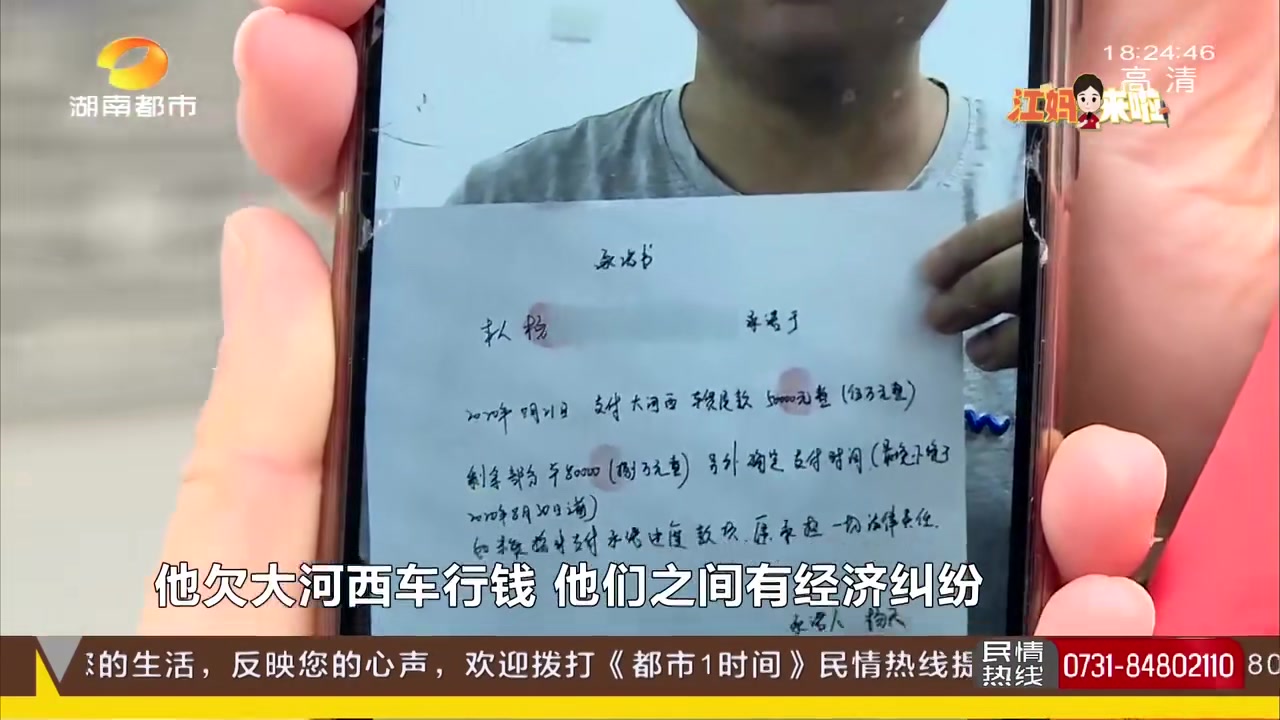 18:24:46
高清
湖南都市
江妈来啦
承诺书
本人 杨
承诺于
2020年7月21日 支付大河西 车贷尾款 50000元整 (伍万元整)
剩余部分 ¥80000 (捌万元整) 另外确定支付时间 (最晚不晚于
2020年8月30日前)
支付承诺进度款项
一切法律责任
承诺人
他欠大河西车行钱 他们之间有经济纠纷
的生活,反映您的心声,欢迎拨打《都市1时间》民情热线
民情热线
0731-84802110
80